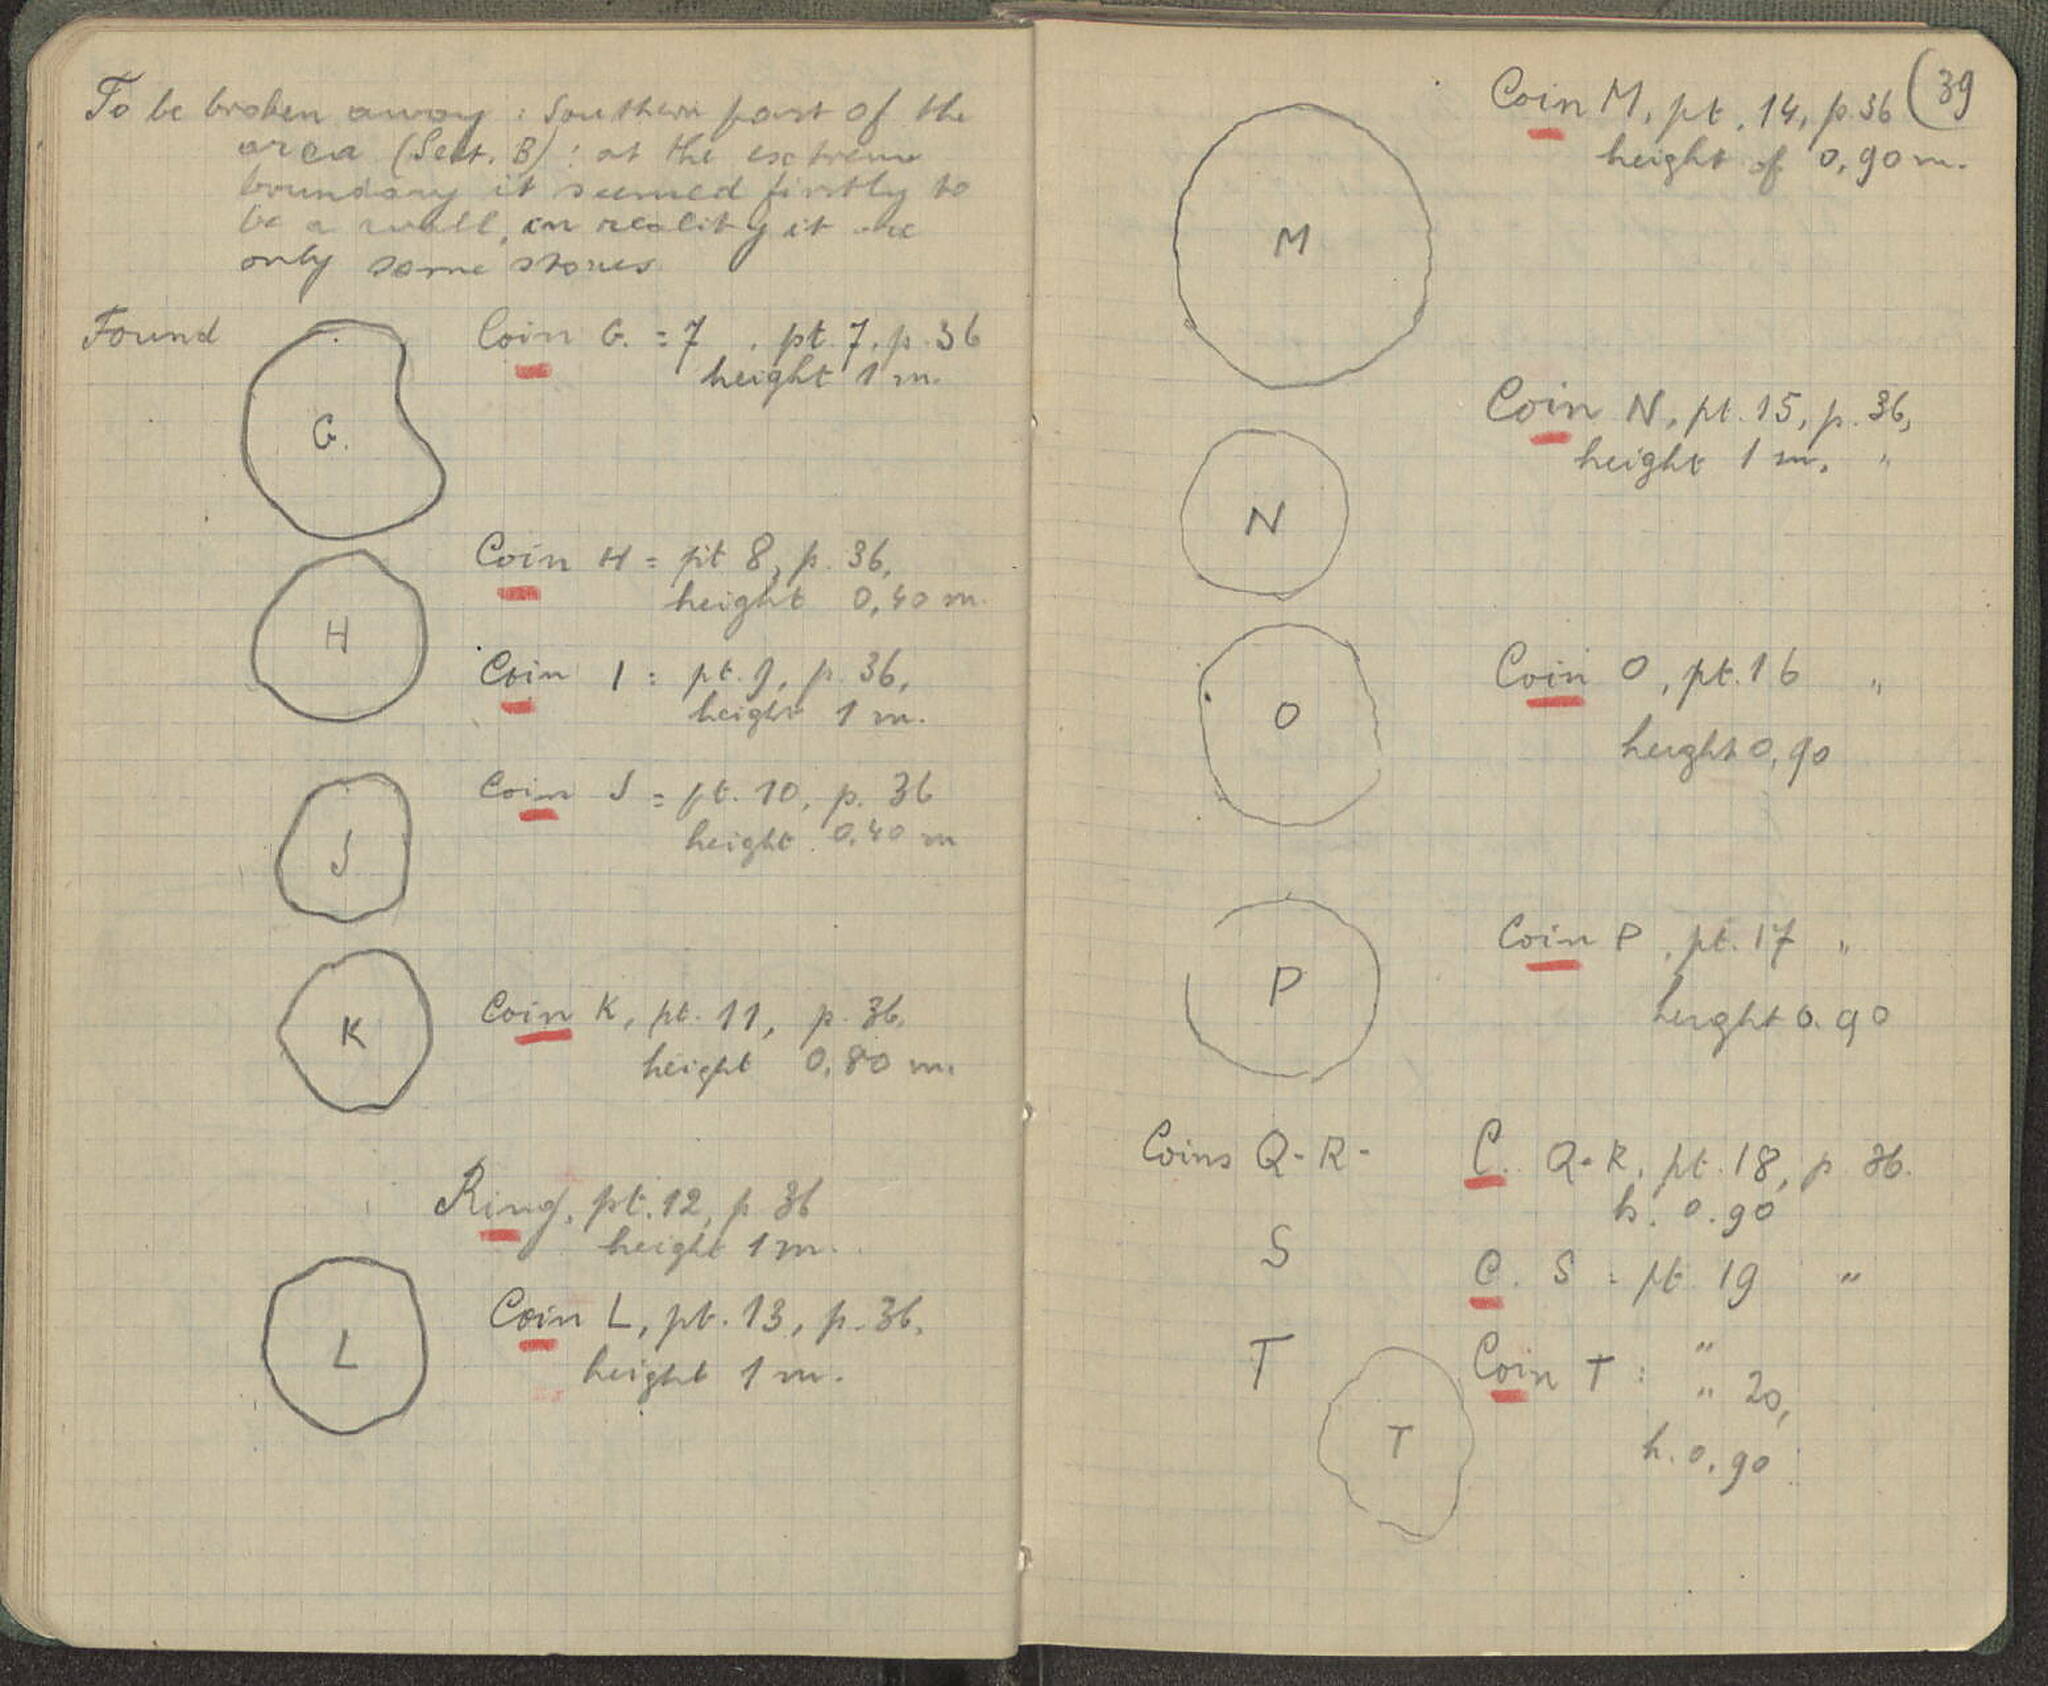 To be broken away : Southern part of the
area (Sect. B) : at the extreme
boundary it seemed firstly to
be a wall, in reality it are
only some stones.
Found
Coin G. = 7 . pt. 7, p. 36
height 1 m.
G.
Coin H = pt 8, p. 36,
height 0,40 m.
H
Coin I = pt. 9, p. 36,
height 1 m.
Coin J = pt. 10, p. 36
height 0.40 m
J
Coin K, pt. 11, p. 36,
height 0,80 m.
K
Ring, pt. 12, p 36
height 1 m.
Coin L, pt. 13, p. 36,
height 1 m.
L
39
Coin M, pt. 14, p. 36
height of 0,90 m.
M
Coin N, pt. 15, p. 36,
height 1 m. "
N
Coin O, pt. 16 "
height 0,90
O
Coin P, pt. 17 "
height 0.90
P
Coins Q - R - C. Q-R, pt. 18, p 36.
h. 0.90
S C. S = pt. 19 "
"
T Coin T : " 20,
h. 0,90
T